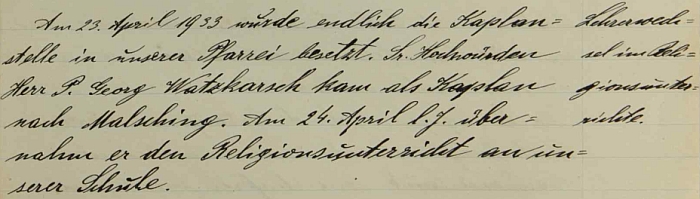 Am 23. April 1933 wurde endlich die Kaplan=
stelle in unserer Pfarrei besetzt. Sr. Hochwürden
Herr P. Georg Watzkarsch kam als Kaplan
nach Malsching. Am 24. April l. J. über=
nahm er den Religionsunterricht an un=
serer Schule.
Lehrerwech=
sel im Reli=
gionsunter=
richte.